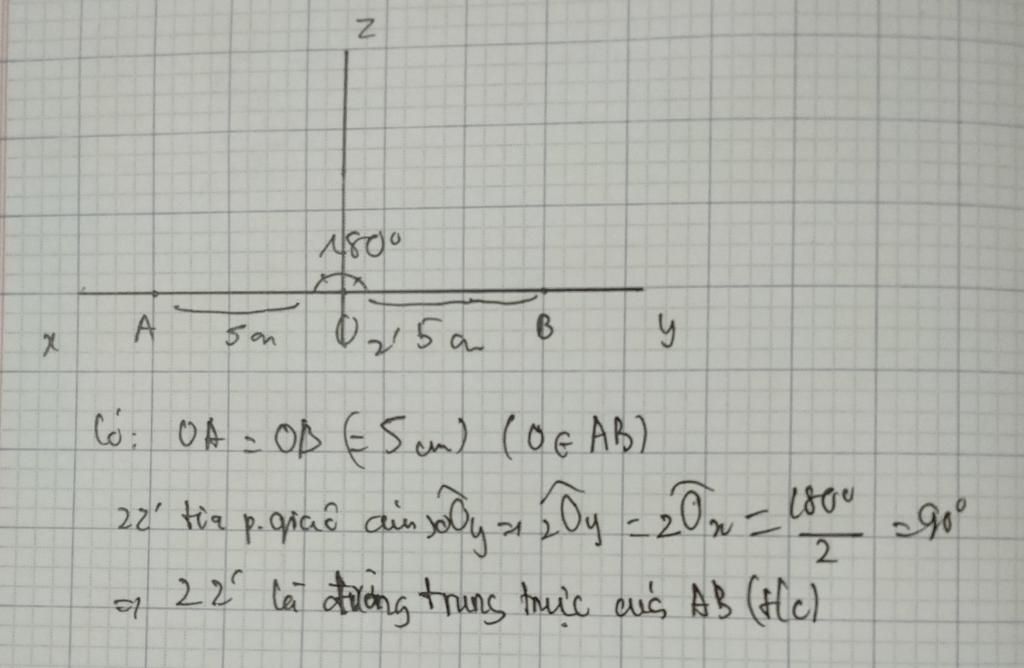 z
180°
x A 5cm O z' 5cm B y
Có: OA = OB (=5cm) (O∈AB)
zz' tia p.giác của xOy => zOy = zOx = 180°/2 = 90°
=> zz' là đường trung trực của AB (t/c)